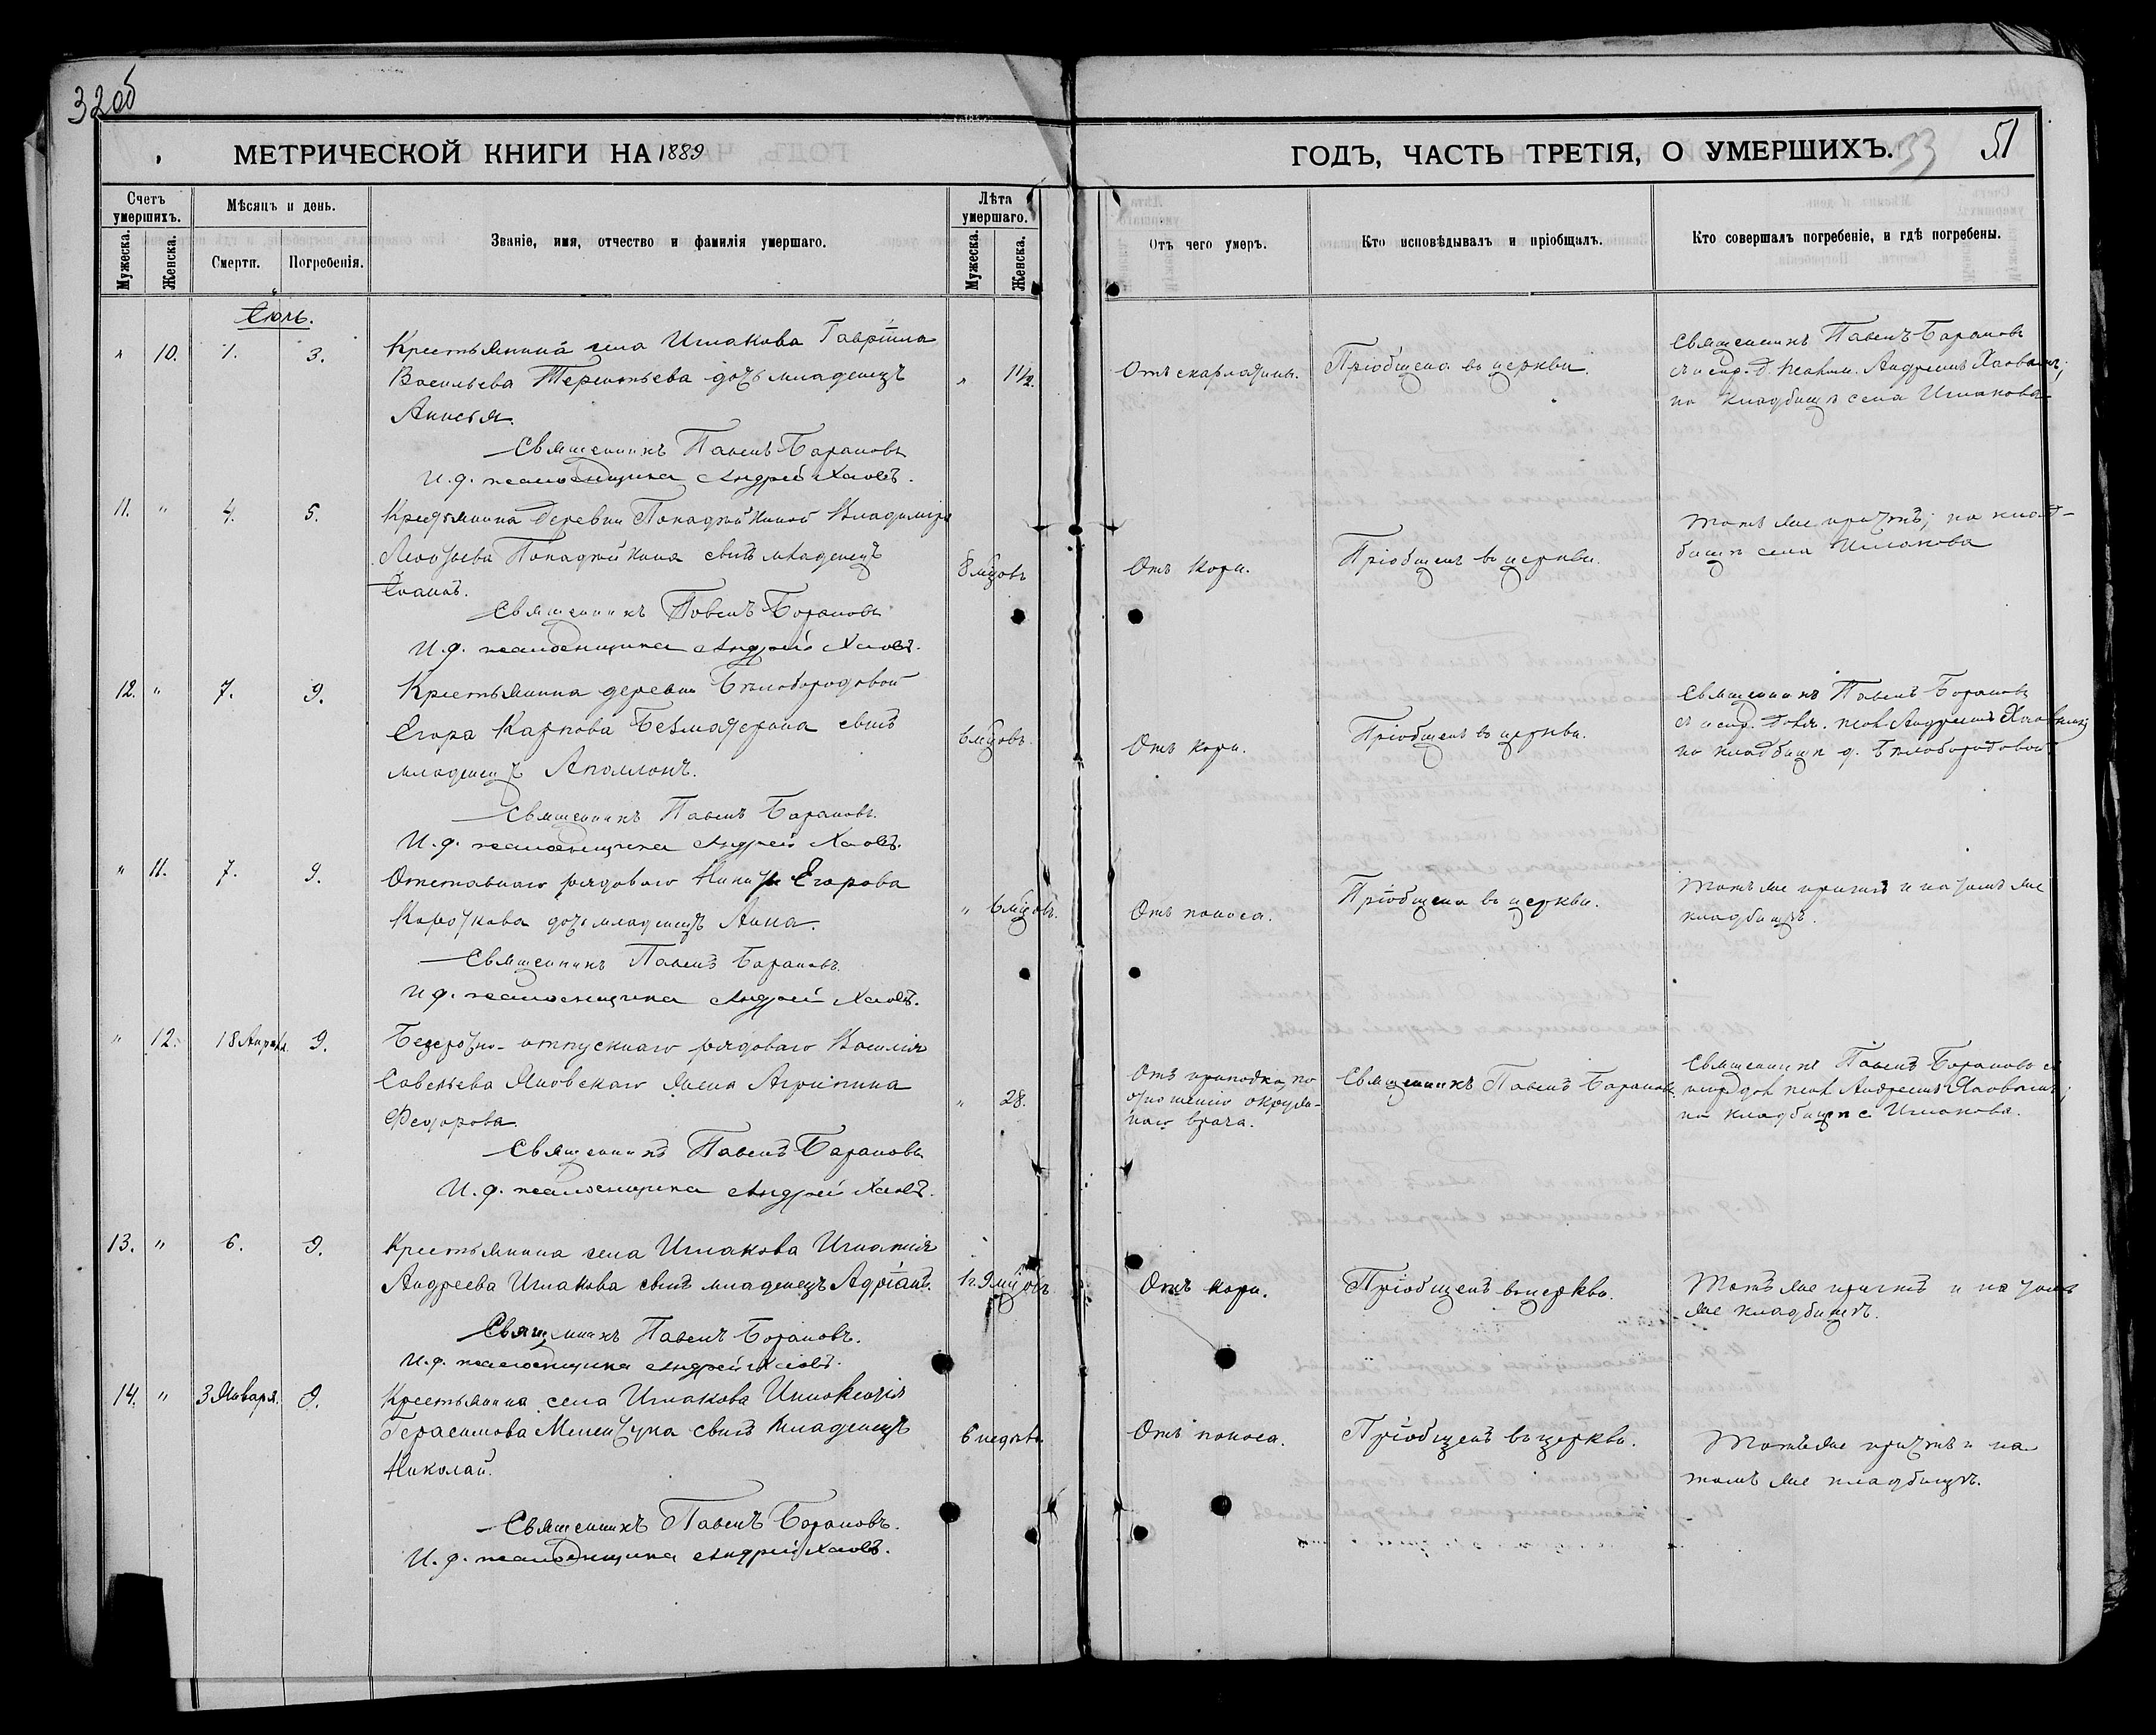 320б
МЕТРИЧЕСКОЙ КНИГИ НА 1889
ГОДЪ, ЧАСТЬ ТРЕТІЯ, О УМЕРШИХЪ.
51
Счетъ умершихъ.
Мѣсяцъ и день.
Званіе, имя, отчество и фамилія умершаго.
Лѣта умершаго.
Мужеска.
Женска.
Смерти.
Погребенія.
Мужеска.
Женска.
Отъ чего умеръ.
Кто исповѣдывалъ и пріобщалъ.
Кто совершалъ погребеніе, и гдѣ погребены.
Іюль.
" 10. 1. 3.
Крестьянина села Ишакова Гавріила
Васильева Терентьева дочь младенецъ
Анисья.
" 1 1/2.
Отъ скарлатины.
Пріобщена въ церкви.
Священникъ Павелъ Барановъ
съ испр. д. псалм. Андреемъ
на кладбищѣ села Ишакова
Священникъ Павелъ Барановъ
И. д. псаломщика Андрей
11. " 4. 5.
Крестьянина деревни Владимира
сынъ младенецъ
Іоаннъ.
8 мцовъ
Отъ кори.
Пріобщенъ въ церкви.
Тотъ же причтъ; на клад-
бищѣ села Ишакова
Священникъ Павелъ Барановъ
И. д. псаломщика Андрей
12. " 7. 9.
Крестьянина деревни Бѣлобородовой
Егора Карпова Безматерина сынъ
младенецъ Аполлонъ.
6 мцовъ.
Отъ кори.
Пріобщенъ въ церкви.
Священникъ Павелъ Барановъ
съ испр. долж. псал. Андреемъ
на кладбищѣ д. Бѣлобородовой
Священникъ Павелъ Барановъ.
И. д. псаломщика Андрей
" 11. 7. 9.
Отставнаго рядоваго Никиты Егорова
Короткова дочь младенецъ Анна.
" 6 мцовъ.
Отъ поноса.
Пріобщена въ церкви.
Тотъ же причтъ и на томъ же
кладбищѣ.
Священникъ Павелъ Барановъ.
И. д. псаломщика Андрей
" 12. 18 Апрѣля. 9.
Безсрочно-отпускнаго рядоваго Василія
Савельева Яновскаго жена Агрипина
Феодорова.
" 28.
Отъ припадка, по
отношенію окруж-
наго врача.
Священникъ Павелъ Барановъ.
Священникъ Павелъ Барановъ съ
испр. дол. псал. Андреемъ
на кладбищѣ с. Ишакова.
Священникъ Павелъ Барановъ
И. д. псаломщика Андрей
13. " 6. 9.
Крестьянина села Ишакова Игнатія
Андреева Ишакова сынъ младенецъ Адріанъ.
1 г. 9 мцовъ
Отъ кори.
Пріобщенъ въ церкви.
Тотъ же причтъ и на томъ
же кладбищѣ.
Священникъ Павелъ Барановъ.
И. д. псаломщика Андрей
14. " 3 Января. 9.
Крестьянина села Ишакова Иннокентія
Герасимова сынъ младенецъ
Николай.
6 недѣль
Отъ поноса.
Пріобщенъ въ церкви.
Тотъ же причтъ и на
томъ же кладбищѣ.
Священникъ Павелъ Барановъ.
И. д. псаломщика Андрей